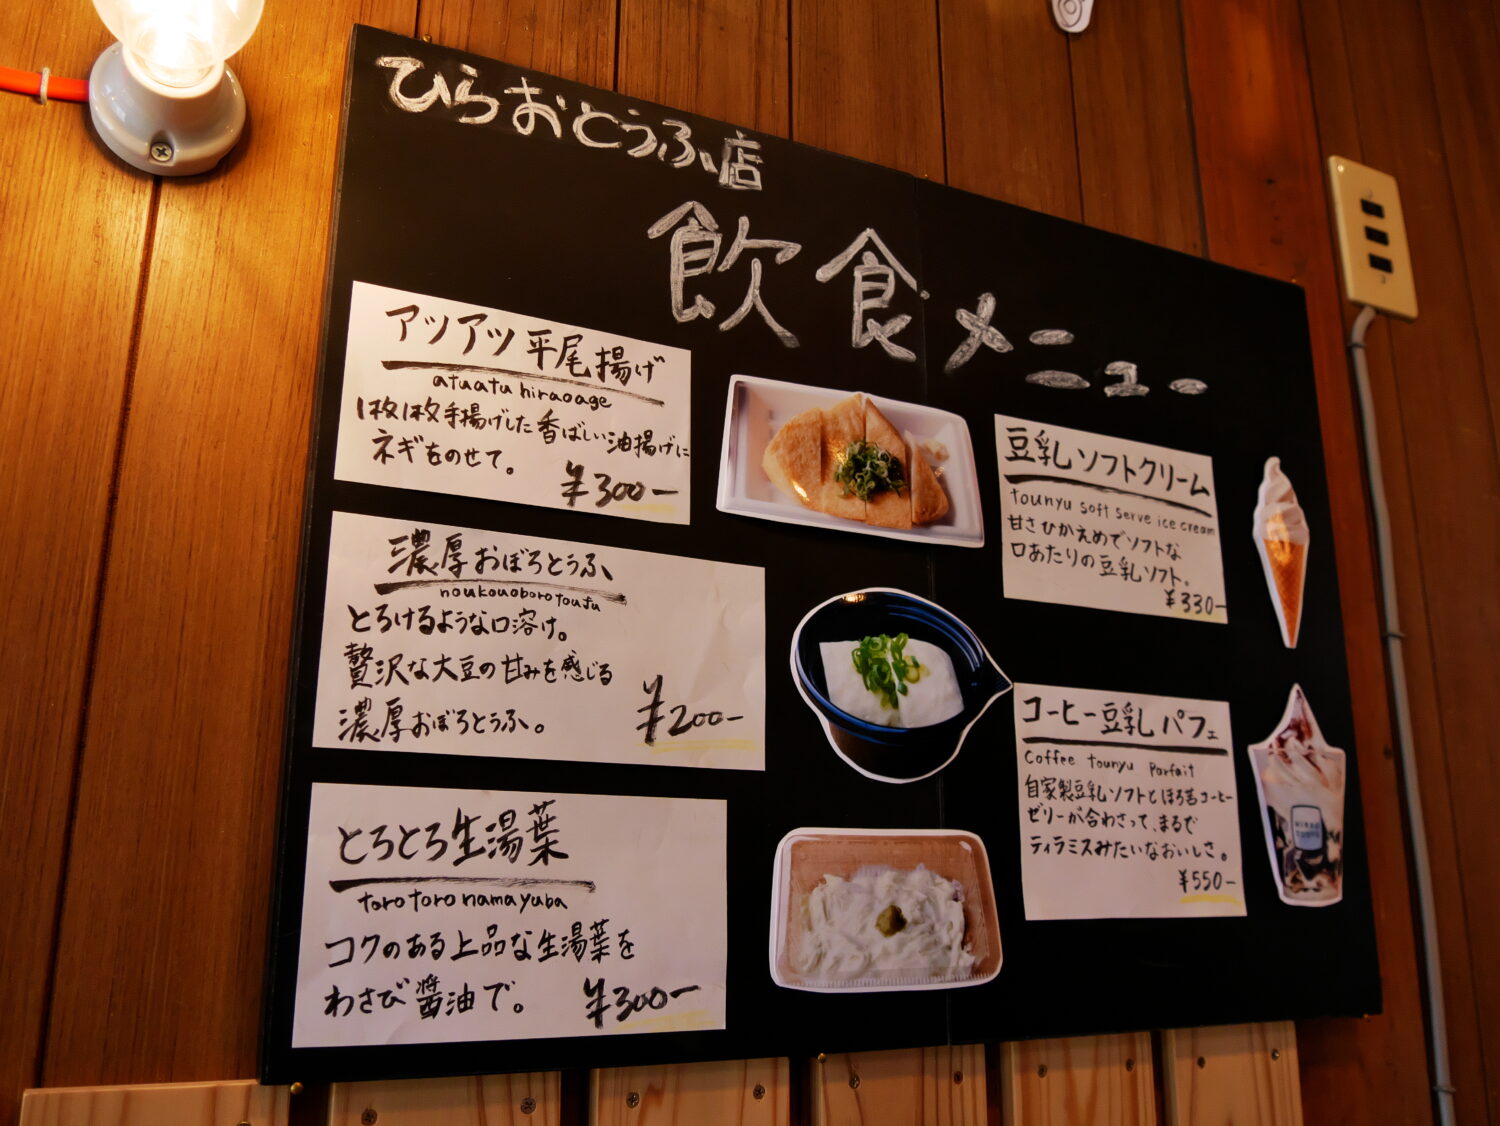 ひらおとうふ店
飲食メニュー
アツアツ平尾揚げ
atuatu hiraoage
1枚1枚手揚げした香ばしい油揚げに
ネギをのせて。
¥300-
濃厚おぼろとうふ
noukouoborotoufu
とろけるような口溶け。
贅沢な大豆の甘みを感じる
濃厚おぼろとうふ。
¥200-
とろとろ生湯葉
torotoro namayuba
コクのある上品な生湯葉を
わさび醤油で。
¥300-
豆乳ソフトクリーム
tounyu soft serve ice cream
甘さひかえめでソフトな
口あたりの豆乳ソフト。
¥330-
コーヒー豆乳パフェ
Coffee tounyu Parfait
自家製豆乳ソフトとほろ苦コーヒー
ゼリーが合わさって、まるで
ティラミスみたいなおいしさ。
¥550-